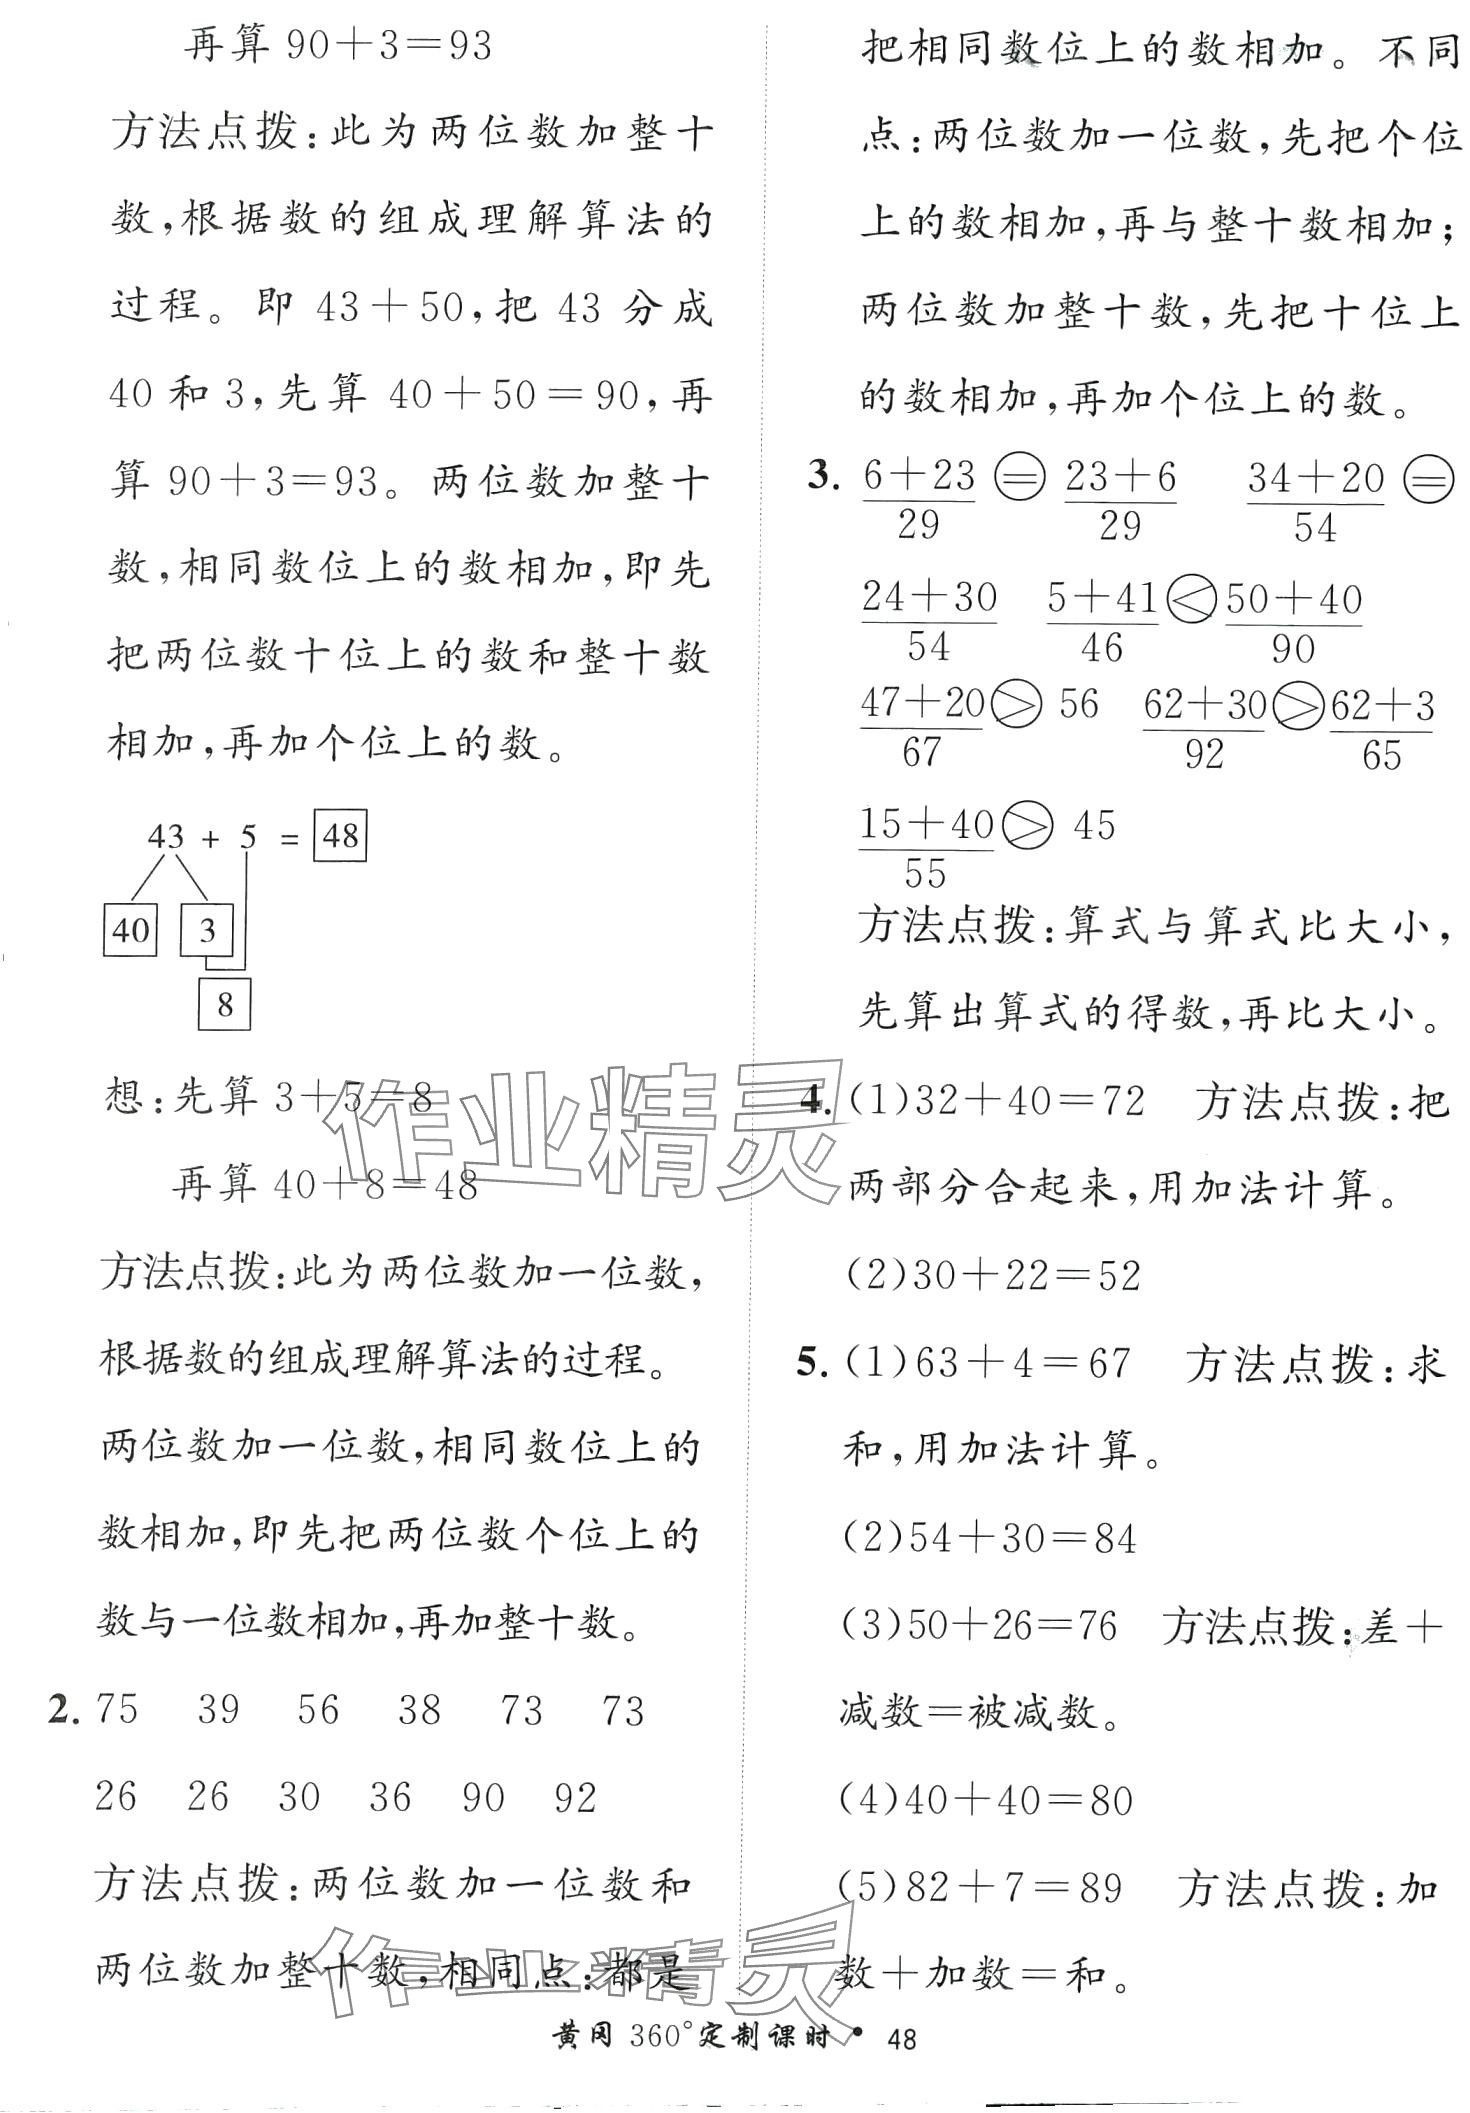 再算 90+3=93
方法点拨:此为两位数加整十
数,根据数的组成理解算法的
过程。即 43+50,把 43 分成
40 和 3,先算 40+50=90,再
算 90+3=93。两位数加整十
数,相同数位上的数相加,即先
把两位数十位上的数和整十数
相加,再加个位上的数。
43 + 5 = 48
40 3
8
想:先算 3+5=8
再算 40+8=48
方法点拨:此为两位数加一位数,
根据数的组成理解算法的过程。
两位数加一位数,相同数位上的
数相加,即先把两位数个位上的
数与一位数相加,再加整十数。
2. 75 39 56 38 73 73
26 26 30 36 90 92
方法点拨:两位数加一位数和
两位数加整十数,相同点:都是
把相同数位上的数相加。不同
点:两位数加一位数,先把个位
上的数相加,再与整十数相加;
两位数加整十数,先把十位上
的数相加,再加个位上的数。
3. 6+23 = 23+6 34+20 =
29 29 54
24+30 5+41 < 50+40
54 46 90
47+20 > 56 62+30 > 62+3
67 92 65
15+40 > 45
55
方法点拨:算式与算式比大小,
先算出算式的得数,再比大小。
4. (1)32+40=72 方法点拨:把
两部分合起来,用加法计算。
(2)30+22=52
5. (1)63+4=67 方法点拨:求
和,用加法计算。
(2)54+30=84
(3)50+26=76 方法点拨:差+
减数=被减数。
(4)40+40=80
(5)82+7=89 方法点拨:加
数+加数=和。
作业精灵
作业精灵
黄冈 360°定制课时 • 48